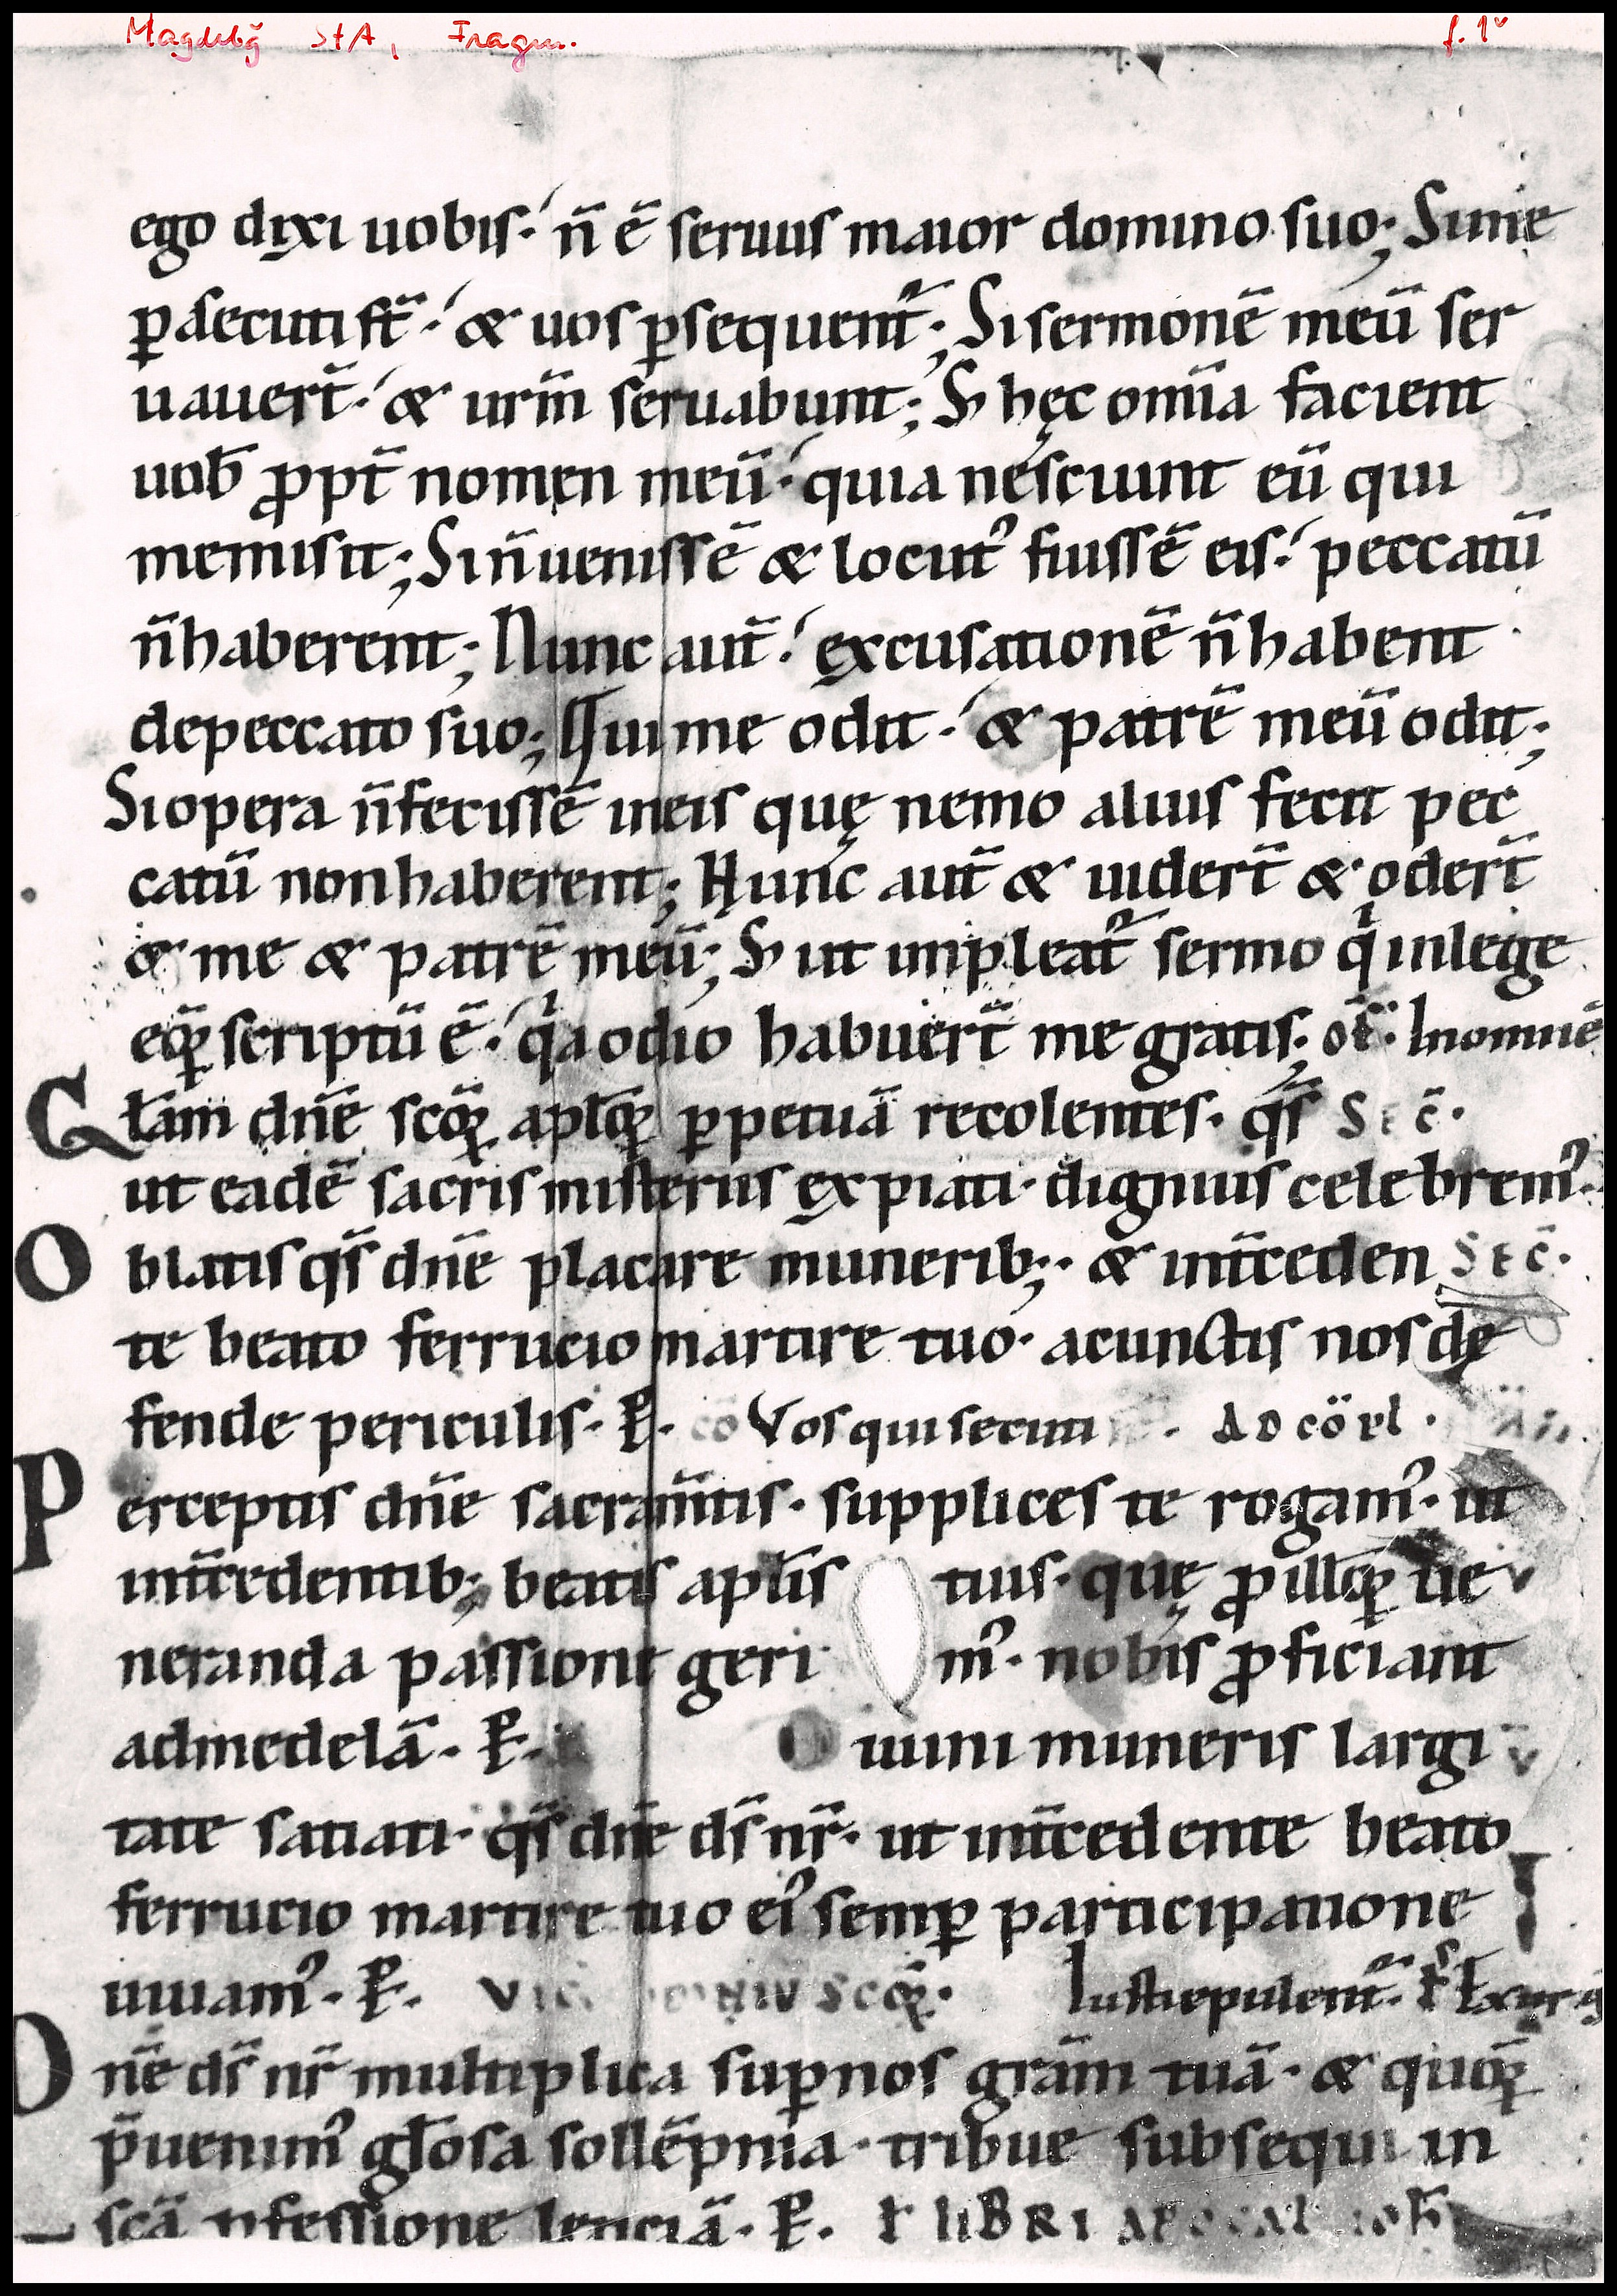 Magdebg̃ StA, Fragm. f. 1v
ego dixi uobis· n̄ ē seruus maior domino suo; Si me
ꝑsecuti st̄· & uos ꝑsequent᷑; Si sermonē meū ser
uauert̄· & urm̄ seruabunt; S; hęc om̄ia facient
uob̄ ꝓpt̄ nomen meū· quia nesciunt eū qui
me misit; Si n̄ uenissē & locut᾽ fuissē eis· peccatū
n̄ haberent; Nunc aut̄· excusationē n̄ habent
de peccato suo; Qui me odit· & patrē meū odit;
Si opera n̄ fecissē in eis quę nemo alius fecit pec
catū non haberent; Nunc aut̄ & uidert̄ & odert̄
& me & patrē meū; S; ut impleat᷑ sermo qͥ in lege
eoꝝ scriptū ē· qͥa odio habuert̄ me gratis; of̄· In omnē
Gła̅m dn̄e scōꝝ apłoꝝ ꝑpetuā recolentes· qs̄ SEC̄·
ut eadē sacris misteriis expiati· dignius celebrem᾽·
Oblatis qs̄ dn̄e placare munerib;· & int̄ceden SEC̄·
te beato ferrucio martire tuo· a cunctis nos de
fende periculis· P̱· cō Vos qui secuti · AD cōpl·
Perceptis dn̄e sacram̄tis· supplices te rogam᾽· ut
int̄cedentib; beatis apłis tuis· quę ꝓ illoꝝ ue
neranda passione geri m᾽· nobis ꝓficiant
ad medelā· P̱· Diuini muneris largi
tate satiati· qs̄ dn̄e ds̄ nr̄· ut int̄cedente beato
ferrucio martire tuo ei᾽ semꝑ participatione
uiuam᾽· P̱· scōꝝ· Iusti epulent᷑·
Dn̄e ds̄ nr̄ multiplica suꝑ nos gr̄am tuā· & quoꝝ
p̄uenim᾽ gło̅sa sollēpnia· tribue subsequi in
scā ꝓfessione leticiā· P̱· ł LIBRI APOCAL ioh̄